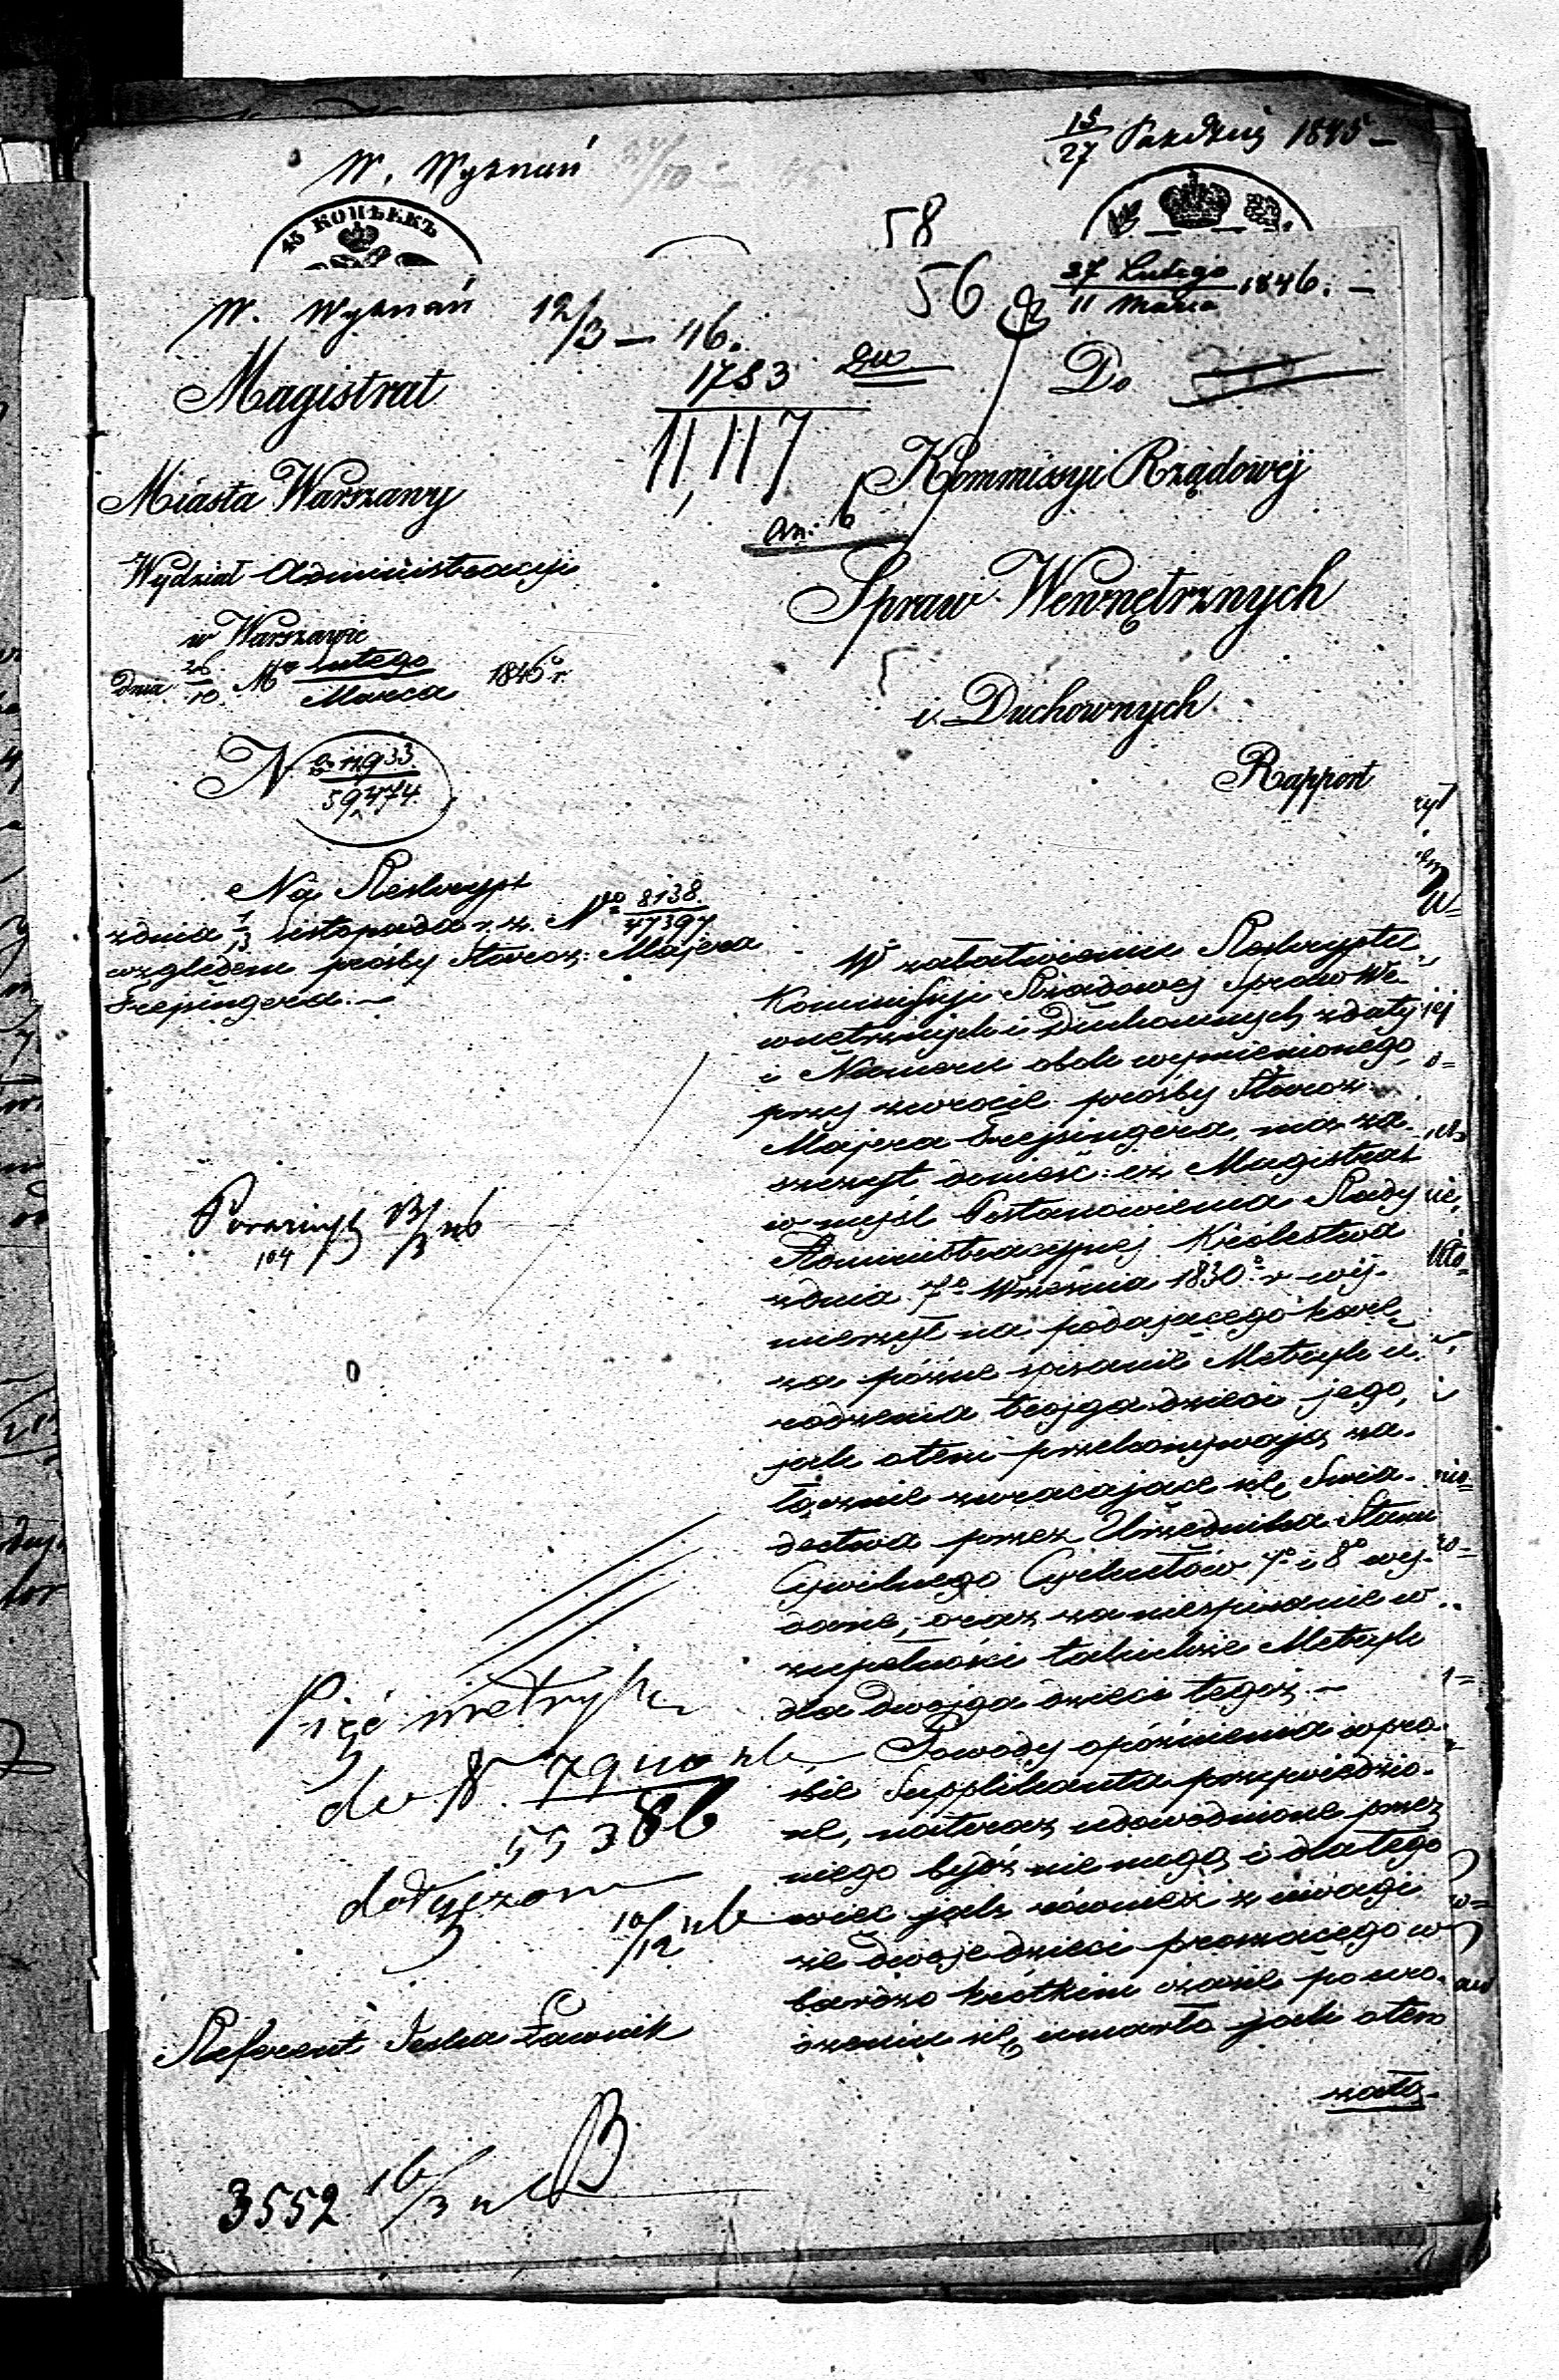 W. Wyznań
15/27 Paździer 1845 –
45 КОПѢЕКЪ
58
56
W. Wyznań 12/3 – 46.
27 Lutego / 11 Marca 1846. –
Magistrat
1783
Do
11,117
Miasta Warszawy
Kommissyi Rządowej
an: 6
Wydział Administracyi
Spraw Wewnętrznych
w Warszawie
dnia 26/10 Mca Lutego / Marca 1846 r.
i Duchownych
N 14933 / 59474
Rapport
Na Reskrypt
z dnia 1/13 Listopada r. z. Nro 8138 / 47397
względem prośby Staroz: Majera
Frejsingera. –
W załatwieniu Reskryptu
Kommissyi Rządowej Spraw We-
wnętrznych i Duchownych z daty
i Numeru obok wymienionego,
przy zwrocie prośby Staroz:
Majera Frejsingera, ma za-
szczyt donieść: iż Magistrat
w myśl Postanowienia Rady
Administracyjnej Królestwa
z dnia 7o Września 1830o r. wy-
mierzył na podającego karę
za późne spisanie Metryk u-
rodzenia trojga dzieci jego,
jak o tem przekonywają za-
łącznie zwracające się Świa-
dectwa przez Urzędnika Stanu
Cywilnego Cyrkułów 7o i 8o wy-
dane, oraz za niespisanie w
zupełności takichże Metryk
dla dwojga dzieci tegoż. –
Powody opóźnienia w pro-
śbie Supplikanta przywiedzio-
ne, na teraz udowodnione przez
niego bydź nie mogą i dlatego
więc jak również z uwagi
że dwoje dzieci proszącego w
bardzo krótkim czasie po uro-
dzeniu się umarło jak o tem
załą-
104
Pięć metryk
do N. 79110
55386
dołączono
10/12
Referent Ławnik
3552 16/3